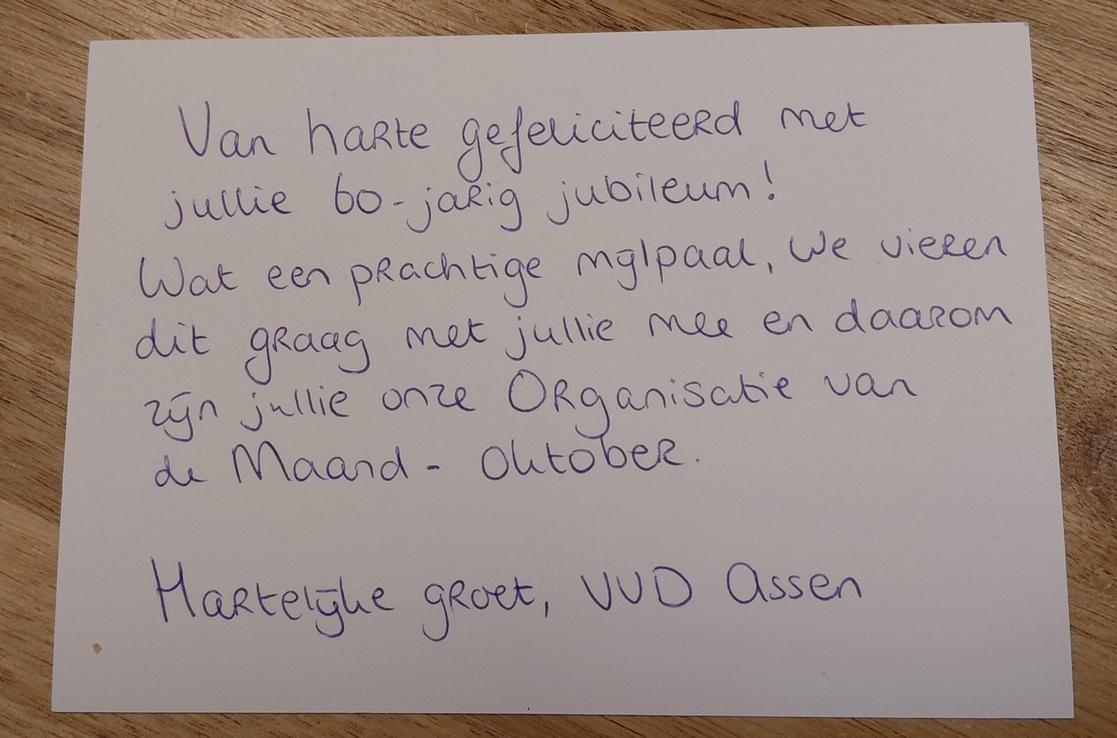 Van harte gefeliciteerd met
jullie 60-jarig jubileum!
Wat een prachtige mijlpaal, we vieren
dit graag met jullie mee en daarom
zijn jullie onze Organisatie van
de Maand - Oktober.
Hartelijke groet, VVD Assen